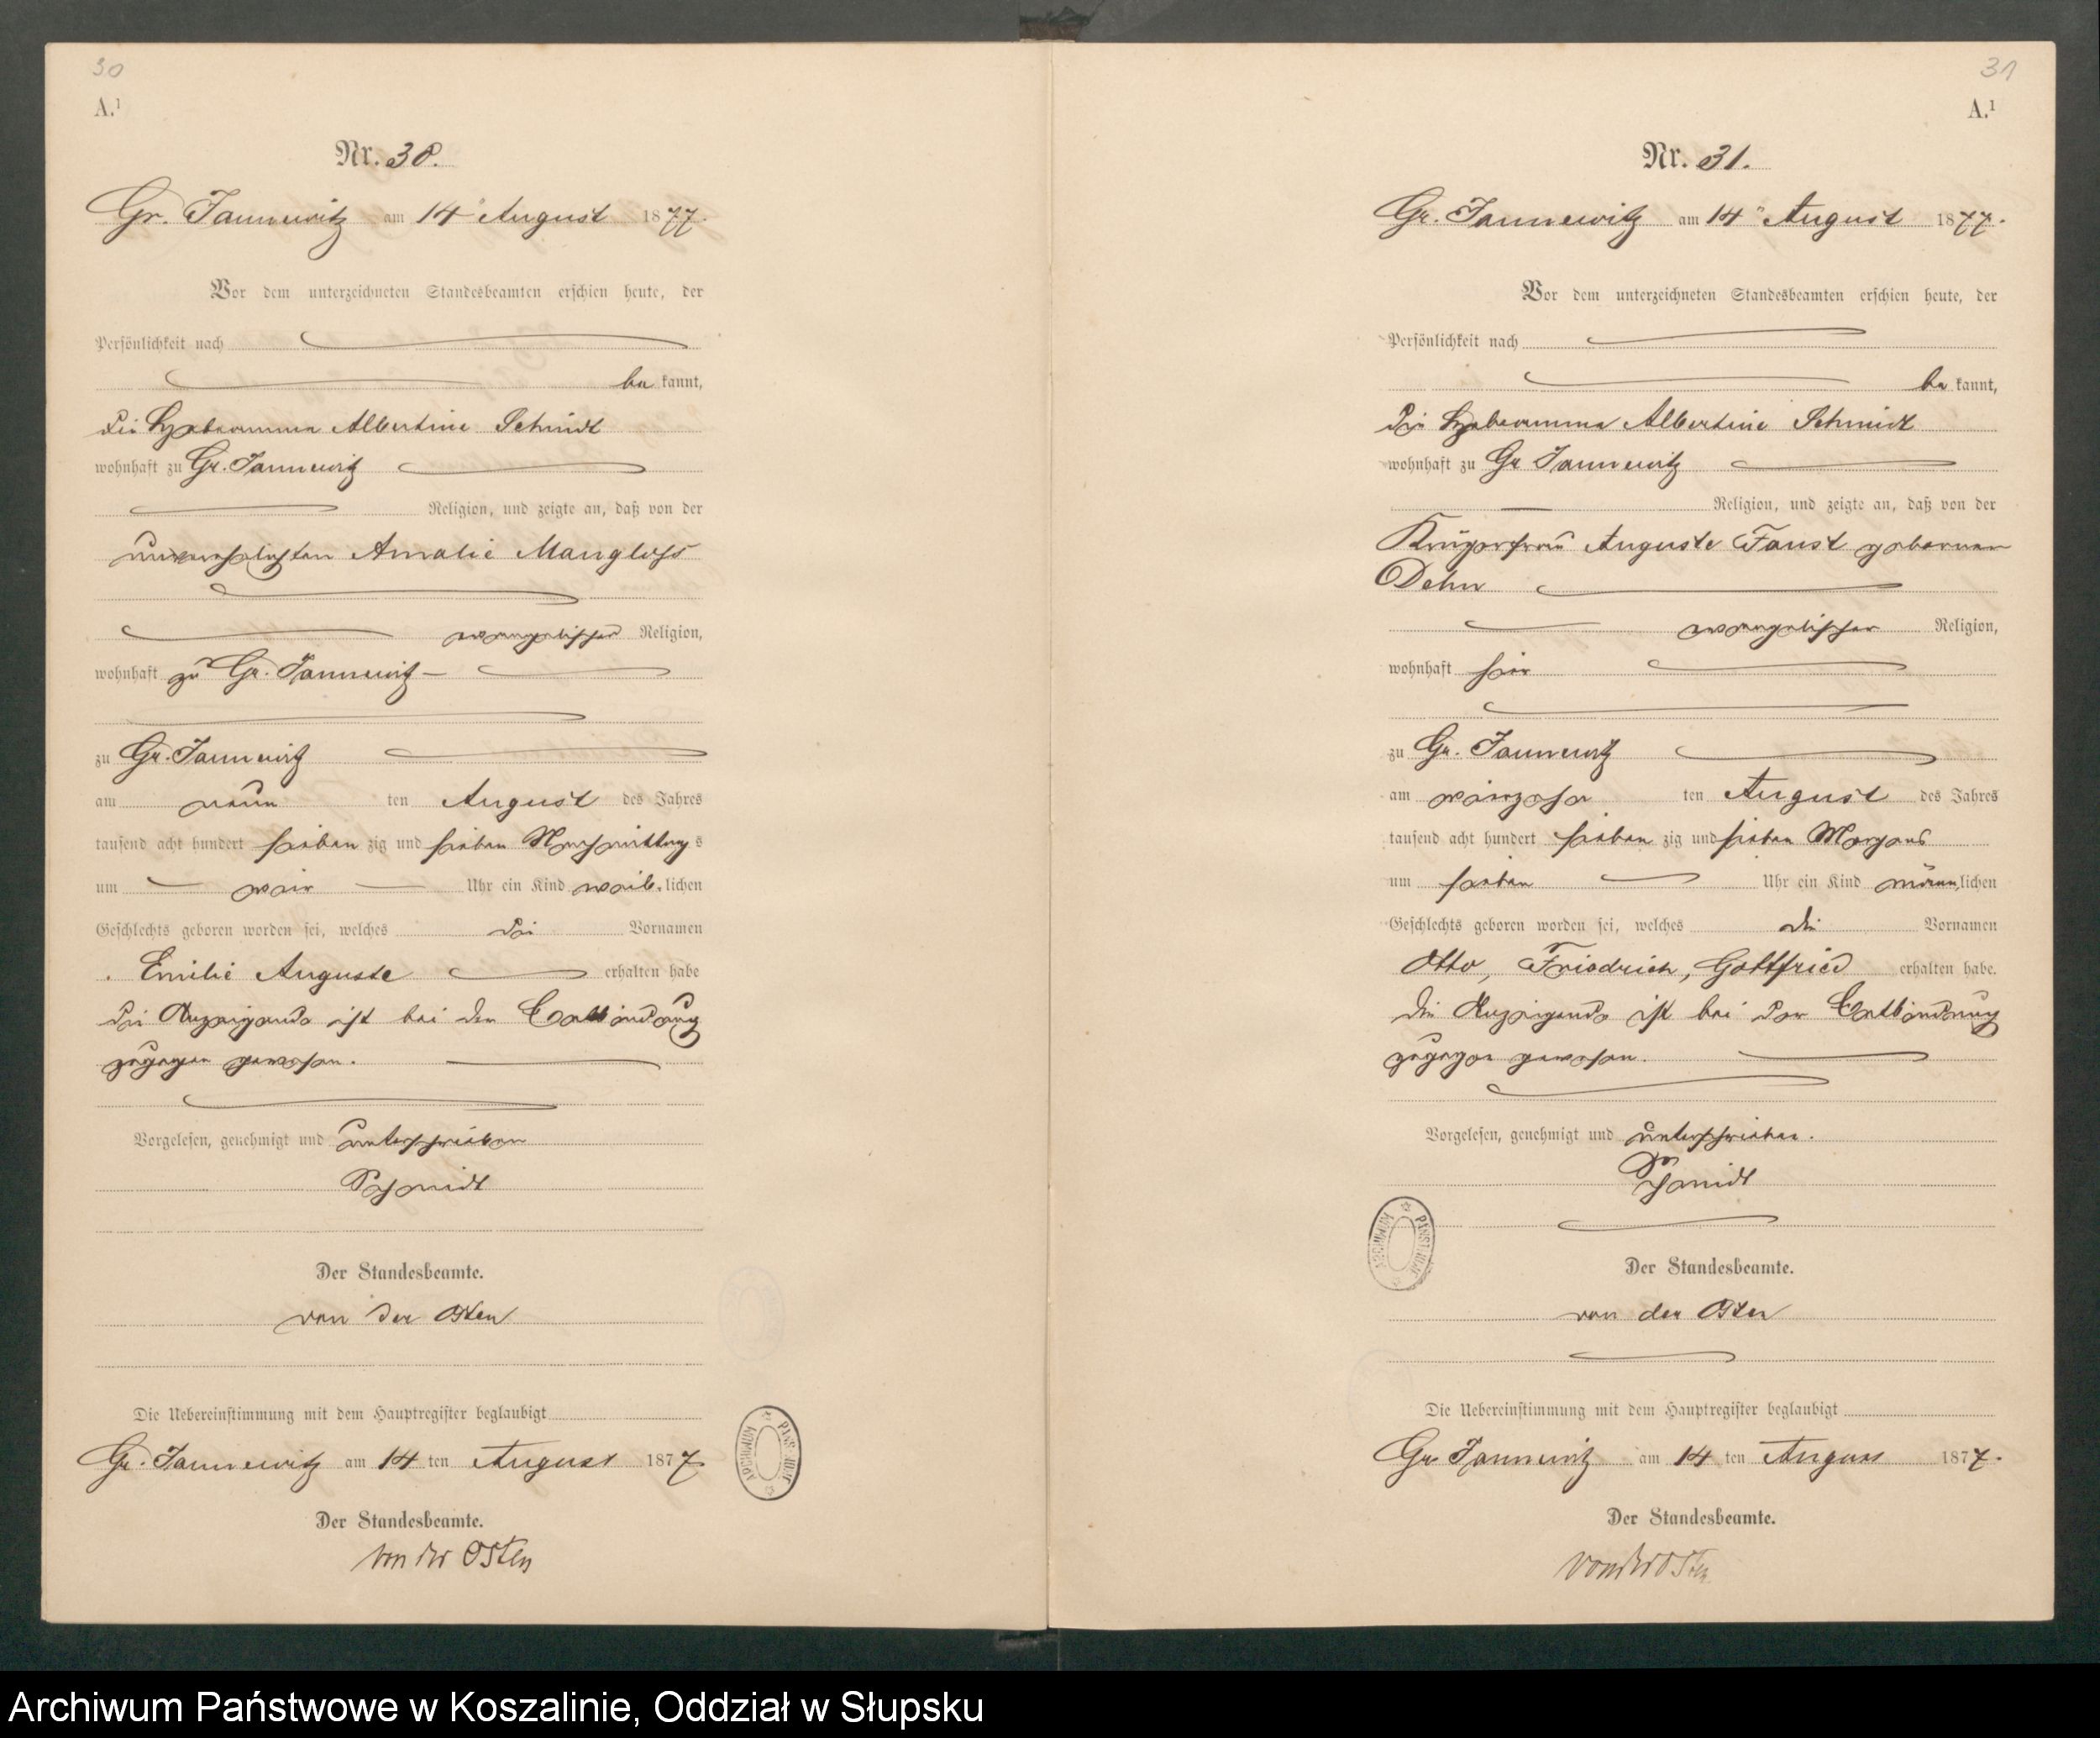 30
A.¹
Nr. 30.
Gr. Jannewitz am 14" August 1877.
Vor dem unterzeichneten Standesbeamten erschien heute, der
Persönlichkeit nach
be kannt,
die Hebeamme Albertine Schmidt
wohnhaft zu Gr. Jannewitz
Religion, und zeigte an, daß von der
unverehelichten Amalie
evangelischer Religion,
wohnhaft zu Gr. Jannewitz
zu Gr. Jannewitz
am neun ten August des Jahres
tausend acht hundert sieben zig und sieben Nachmittag s
um vier Uhr ein Kind weib lichen
Geschlechts geboren worden sei, welches die Vornamen
Emilie Auguste erhalten habe
die Anzeigende ist bei der Entbindung
zugegen gewesen.
Vorgelesen, genehmigt und unterschrieben
Schmidt
Der Standesbeamte.
von der Osten
Die Uebereinstimmung mit dem Hauptregister beglaubigt
Gr. Jannewitz am 14 ten August 1877
Der Standesbeamte.
von der Osten
31
A.¹
Nr. 31.
Gr. Jannewitz am 14" August 1877.
Vor dem unterzeichneten Standesbeamten erschien heute, der
Persönlichkeit nach
be kannt,
die Hebeamme Albertine Schmidt
wohnhaft zu Gr Jannewitz
Religion, und zeigte an, daß von der
Krügerfrau Auguste Faust geborenen
Dehn
evangelischer Religion,
wohnhaft hier
zu Gr. Jannewitz
am vierzehn ten August des Jahres
tausend acht hundert sieben zig und sieben Morgens
um sieben Uhr ein Kind männ lichen
Geschlechts geboren worden sei, welches die Vornamen
Otto, Friedrich, Gottfried erhalten habe.
die Anzeigende ist bei der Entbindung
zugegen gewesen.
Vorgelesen, genehmigt und unterschrieben.
Schmidt
Der Standesbeamte.
von der Osten
Die Uebereinstimmung mit dem Hauptregister beglaubigt
Gr Jannewitz am 14 ten August 1877.
Der Standesbeamte.
von der Osten
ARCHIWUM PAŃSTWOWE
Archiwum Państwowe w Koszalinie, Oddział w Słupsku